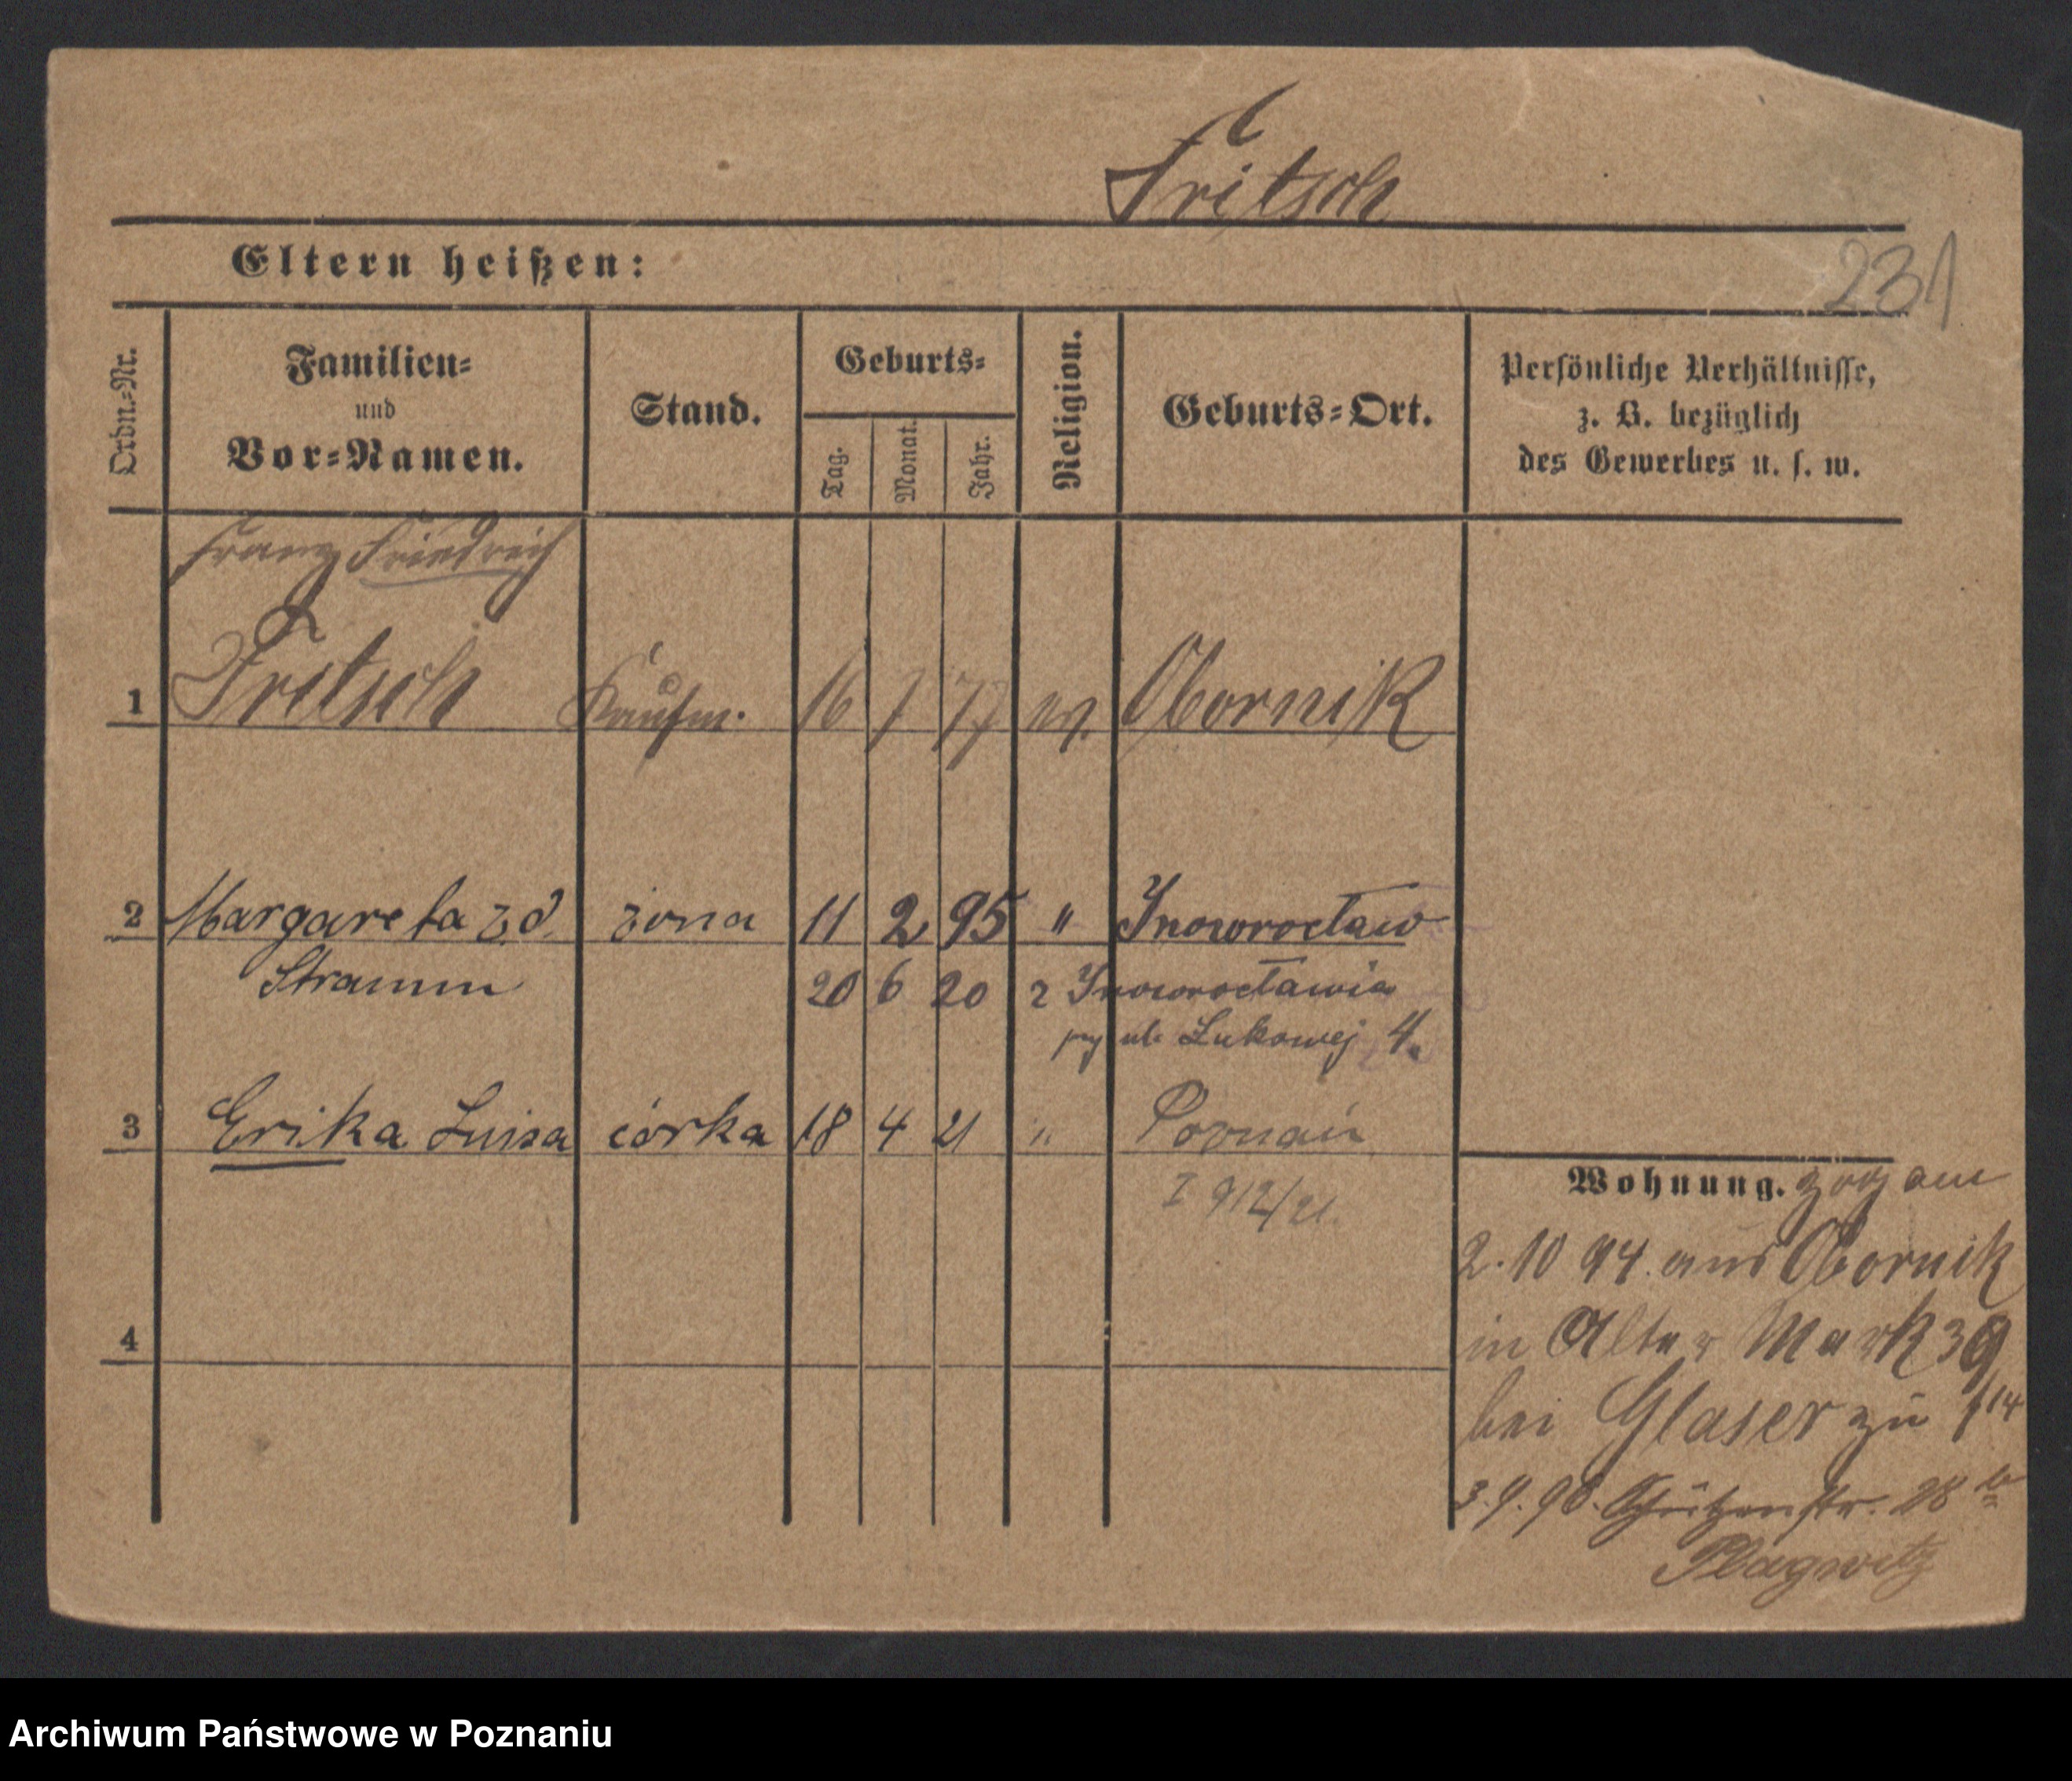 Fritsch
Eltern heißen:
231
Ordn.-Nr.
Familien-
und
Vor-Namen.
Stand.
Geburts-
Tag.
Monat.
Jahr.
Religion.
Geburts-Ort.
Persönliche Verhältnisse,
z. B. bezüglich
des Gewerbes u. s. w.
Franz Friedrich
1 Fritsch Kaufm. 16 7 77 ev. Obornik
2 Margareta z d. żona 11 2 95 " Inowrocław
Stramm 20 6 20 z Inowrocławia
przy ul. Łukowej 4.
3 Erika Luisa córka 18 4 21 " Poznań
I 912/21.
4
Wohnung. zog am
2. 10 94. aus Obornik
in Alter Mark 39
bei Glaser zu
3. 9. 96. Schützenstr. 28
Plagwitz
Archiwum Państwowe w Poznaniu